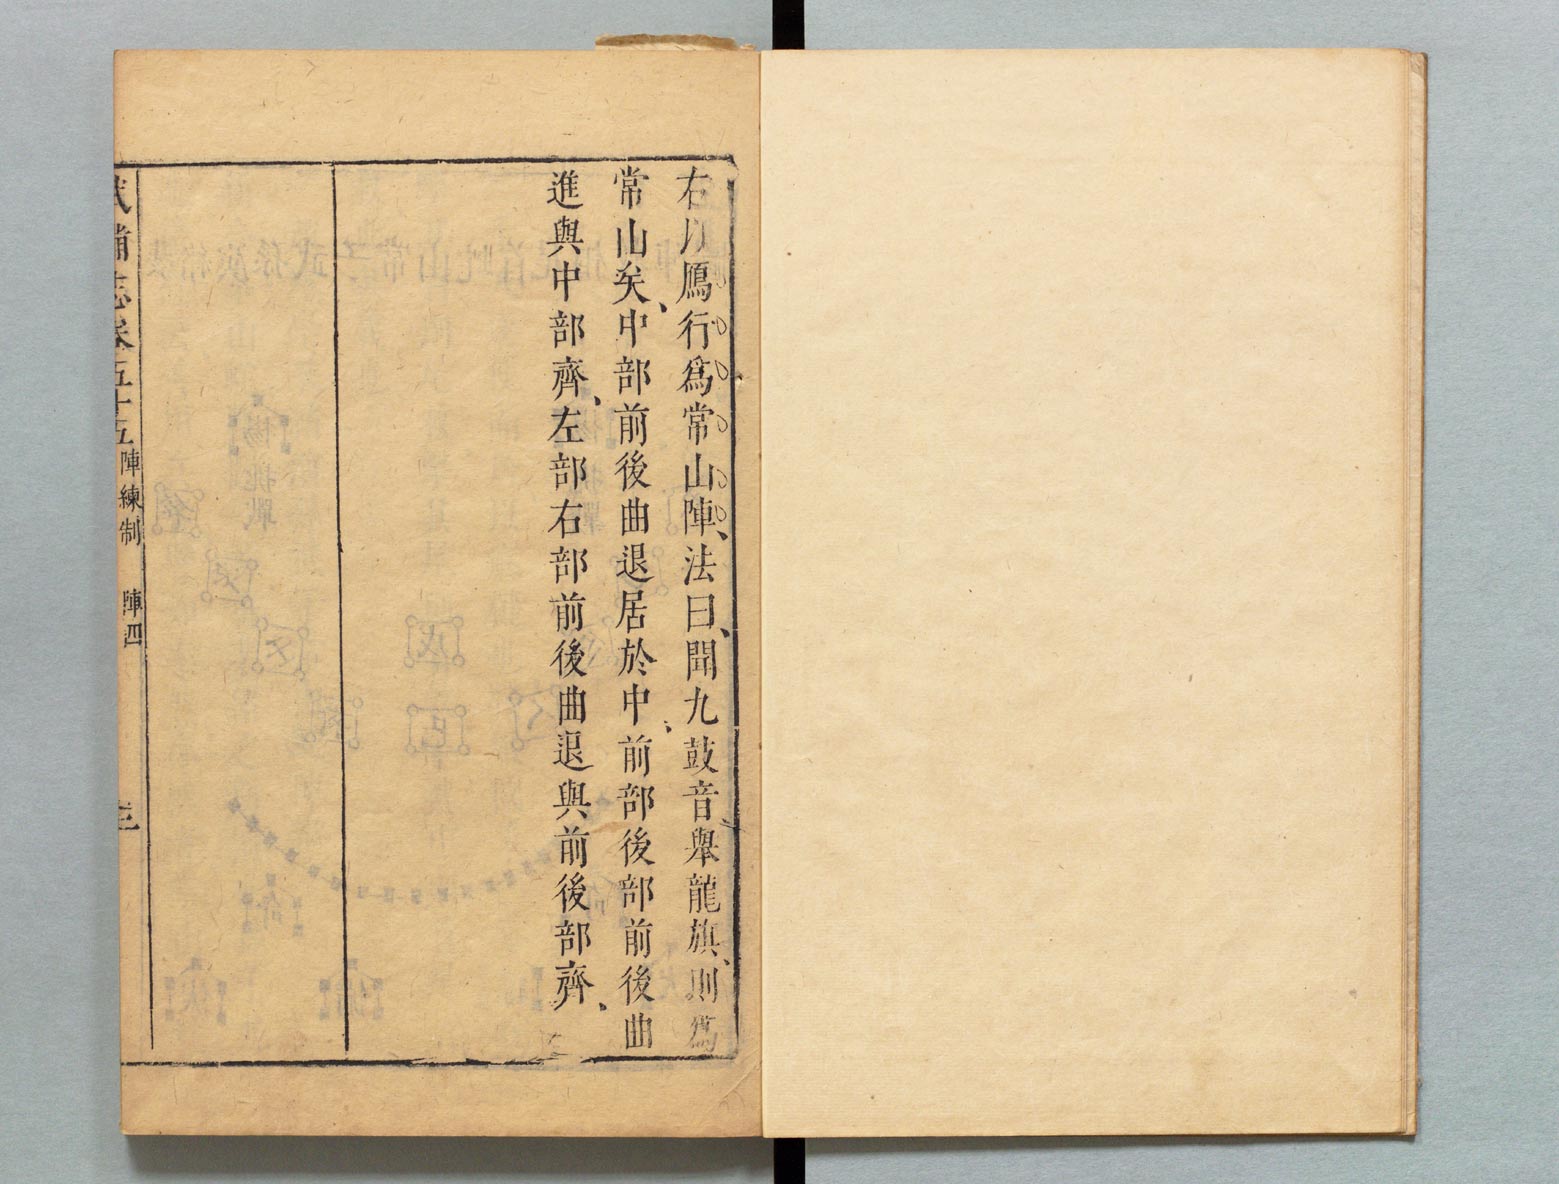 右以鴈行爲常山陣、法曰、聞九鼓音舉龍旗、則爲
常山矣、中部前後曲退居於中、前部後部前後曲
進與中部齊、左部右部前後曲退與前後部齊、
武備志卷五十五 陣練制 陣四 三